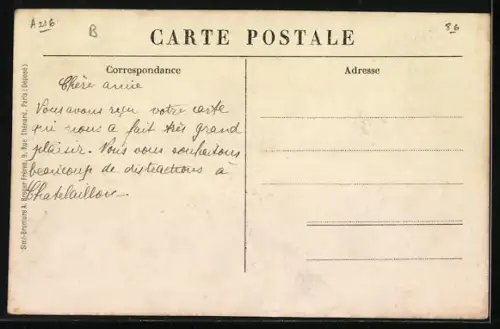 A 216
B
8 6
CARTE POSTALE
Correspondance
Adresse
Chère amie
Nous avons reçu votre carte
qui nous a fait très grand
plaisir. Nous vous souhaitons
beaucoup de distractions à
Chatelaillon
Simili-Bromure A. Breger Frères, 9, Rue Thénard, Paris (Déposé)